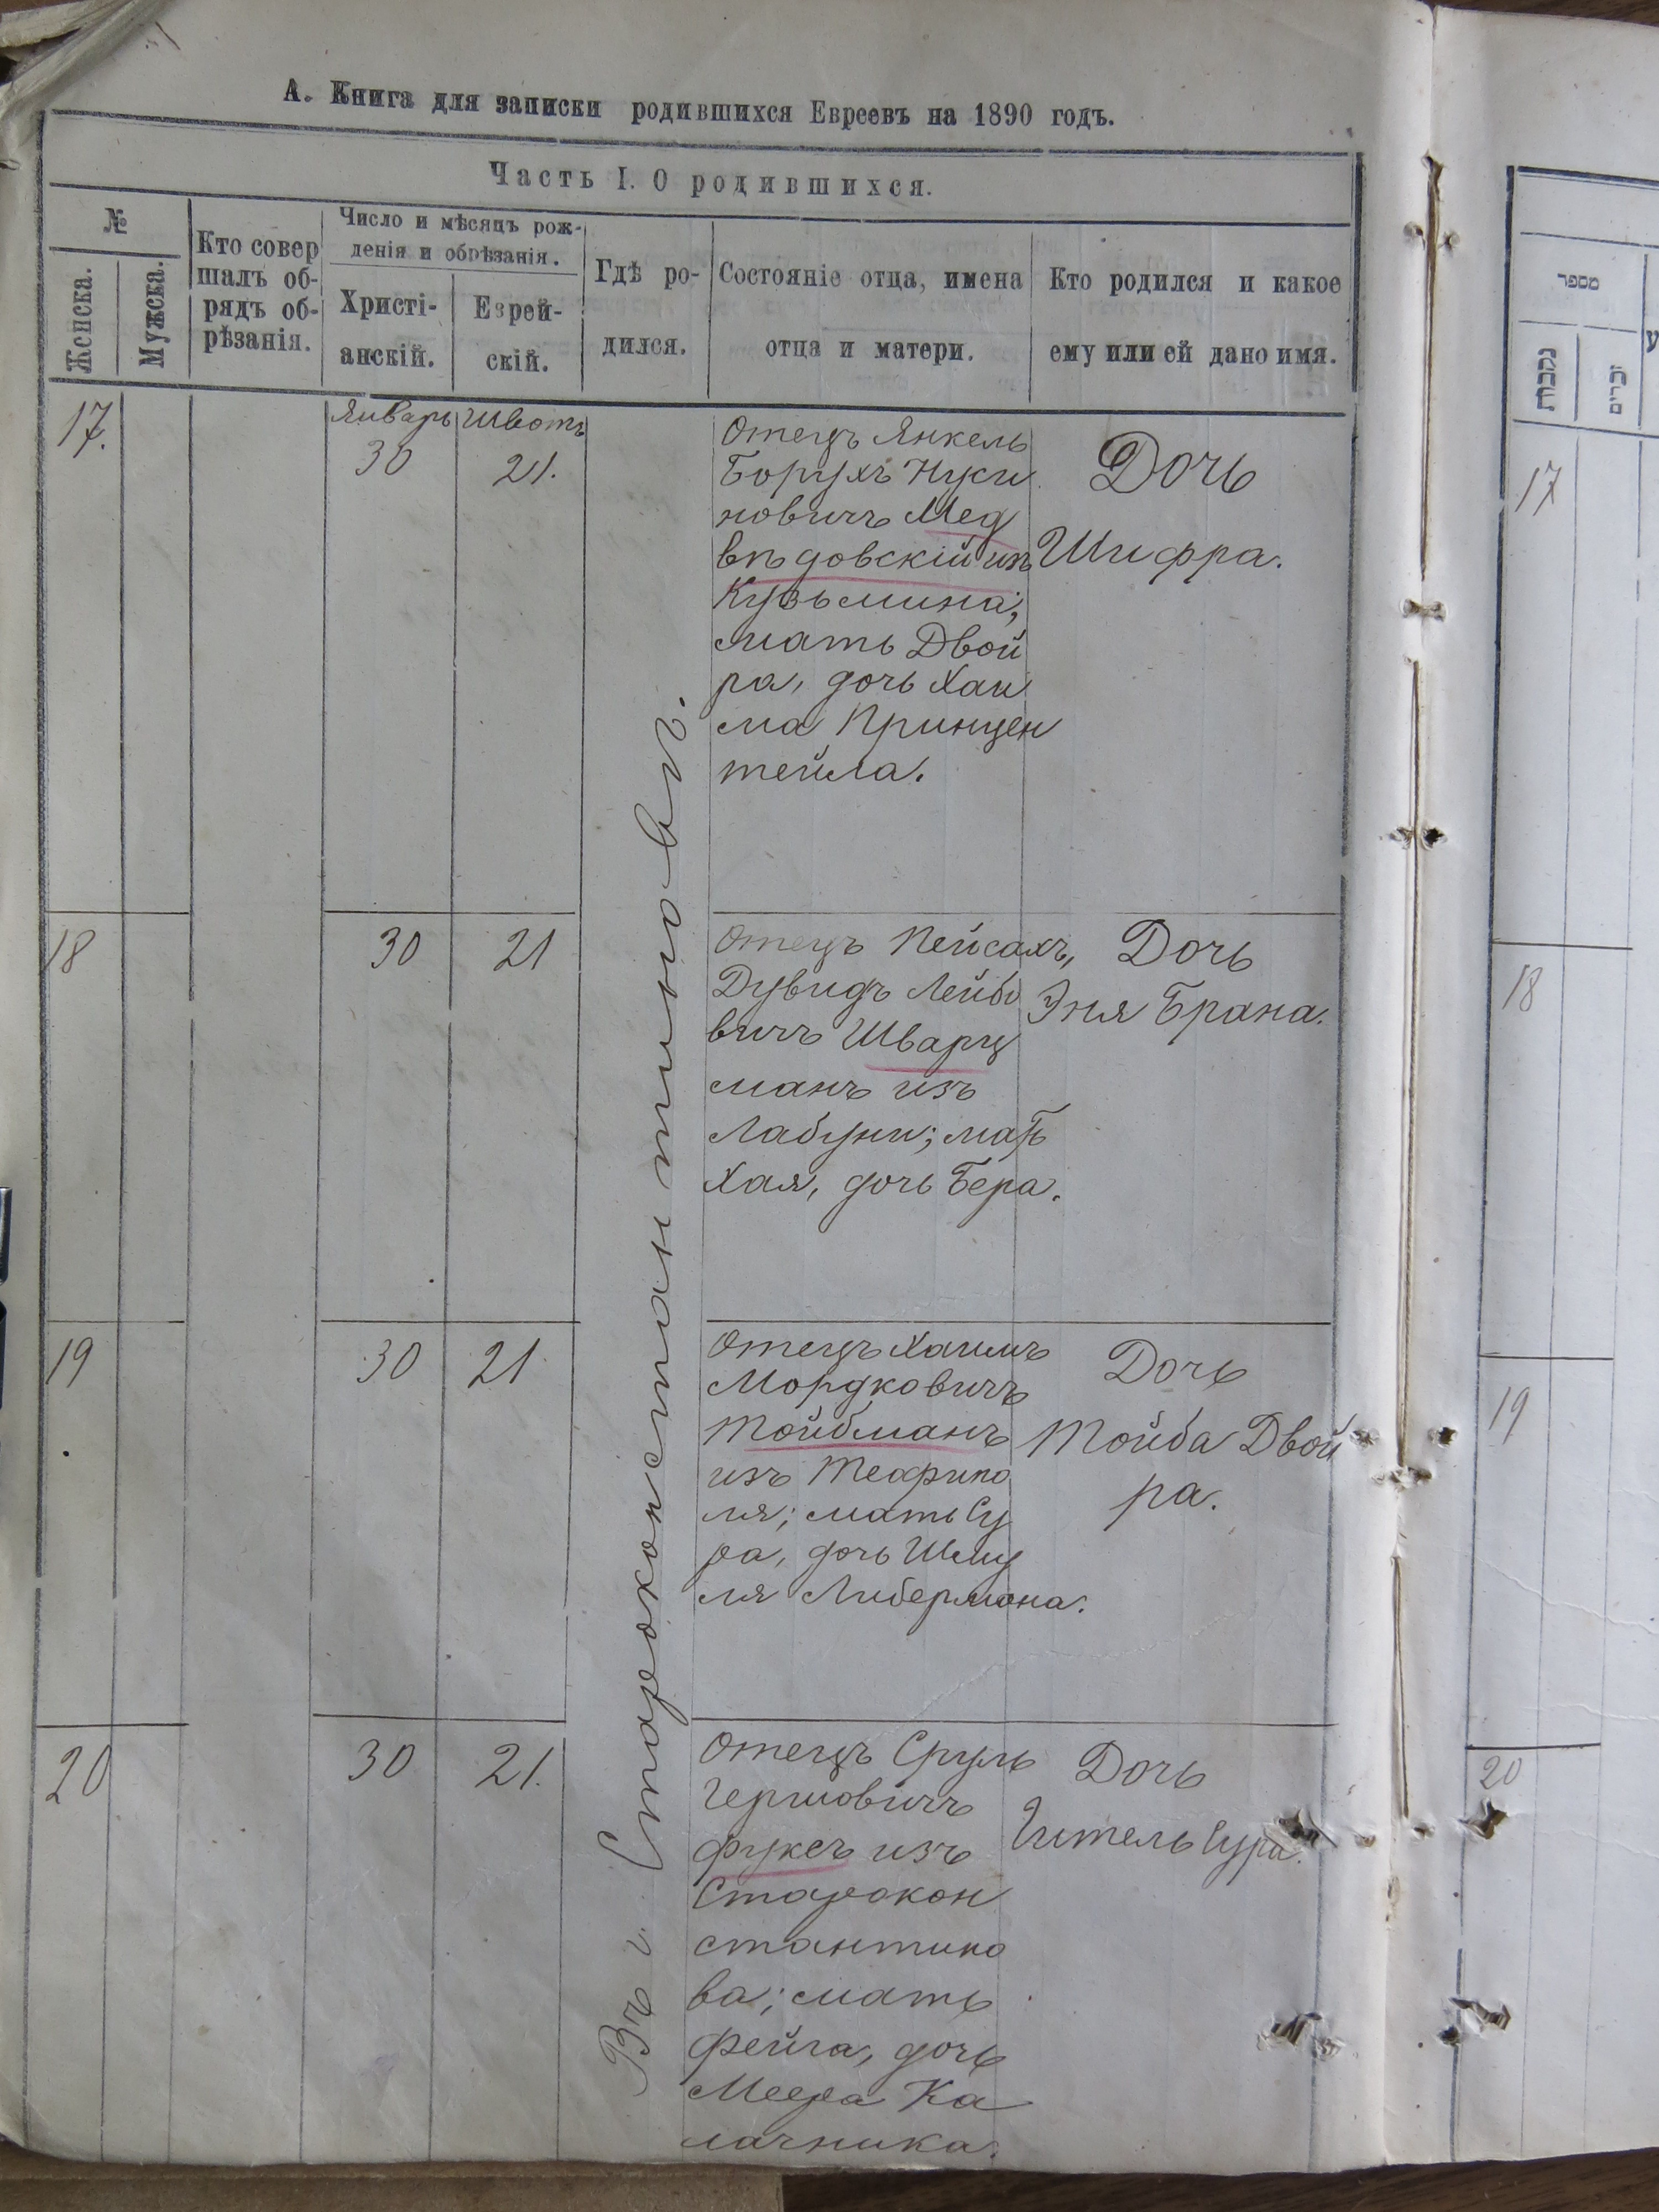 А. Книга для записки родившихся Евреевъ на 1890 годъ.
Часть I. О родившихся.
№
Женска.
Мужска.
Кто совер
шалъ об-
рядъ об-
рѣзанія.
Число и мѣсяцъ рож-
денія и обрѣзанія.
Христі-
анскій.
Еврей-
скій.
Гдѣ ро-
дился.
Состояніе отца, имена
отца и матери.
Кто родился и какое
ему или ей дано имя.
17.
Январь
30
Шватъ
21.
Отецъ Янкель
Борухъ Нухи
мовичъ Мед
вѣдовскій изъ
Кузьмина;
мать Двой
ра, дочь Хаи
ма Принцен
тейла.
Дочь
Шифра.
18
30
21
Отецъ Пейсахъ,
Дувидъ Лейбо
вичъ Шварц
манъ изъ
Лабуни; мать
Хая, дочь Бера.
Дочь
Эня Брана.
19
30
21
Отецъ Хаимъ
Мордковичъ
Тойбманъ
изъ Теофипо
ля; мать Су
ра, дочь Шму
ля Либермана.
Дочь
Тойба Двой
ра.
20
30
21.
Отецъ Сруль
Гершовичъ
Фуксъ изъ
Старокон
стантино
ва; мать
Фейга, дочь
Меера Ка
лачника.
Дочь
Гитель Сура.
Въ г. Староконстантиновѣ.
מספר
נקבות
זכרים
17
18
19
20